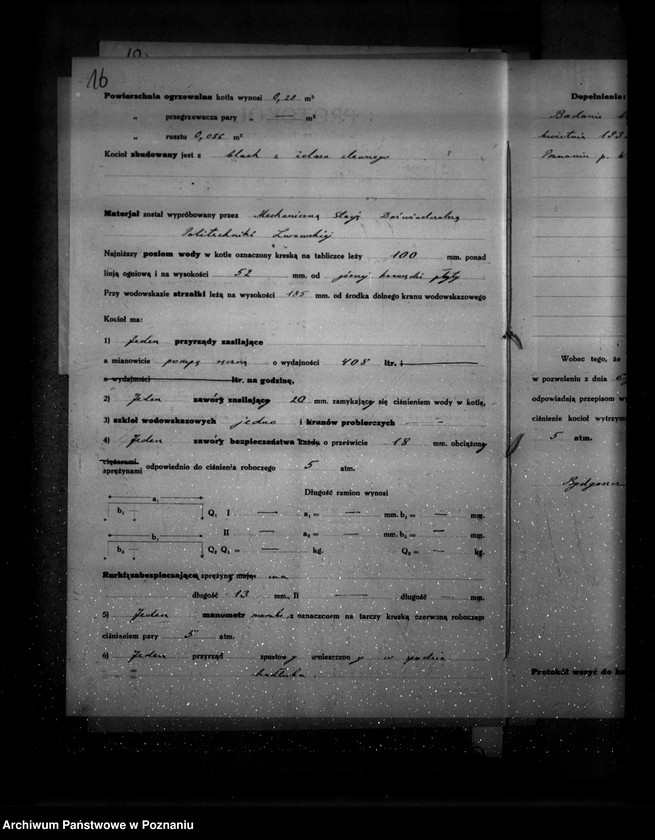 16
Powierzchnia ogrzewalna kotła wynosi 0,22 m²
„ przegrzewacza pary „ — m²
„ rusztu 0,086 m²
Kocioł zbudowany jest z blach z żelaza zlewnego
Materjał został wypróbowany przez Mechaniczną Stację Doświadczalną
Politechniki Lwowskiej
Najniższy poziom wody w kotle oznaczony kreską na tabliczce leży 100 mm. ponad
linją ogniową i na wysokości 52 mm. od górnej krawędzi płyty
Przy wodowskazie strzałki leżą na wysokości 185 mm. od środka dolnego kranu wodowskazowego
Kocioł ma:
1) Jeden przyrządy zasilające
a mianowicie pompę ręczną o wydajności 408 ltr. i
o wydajności ltr. na godzinę,
2) Jeden zawory zasilające 20 mm. zamykające się ciśnieniem wody w kotle,
3) szkieł wodowskazowych jedno i kranów probierczych —
4) Jeden zawory bezpieczeństwa każdy o prześwicie 18 mm. obciążony
ciężarami
sprężynami odpowiednio do ciśnienia roboczego 5 atm.
Długość ramion wynosi
a₁
b₁ Q₁ I — a₁ = — mm. b₁ = — mm.
II — a₂ = — mm. b₂ = — mm.
b₂ Q₂ Q₁ = — kg. Q₂ = — kg.
Rurki zabezpieczające sprężyny mają: ma
długość 13 mm., II — długość — mm.
5) Jeden manometr z oznaczoną na tarczy kreską czerwoną roboczem
ciśnieniem pary 5 atm.
6) Jeden przyrząd spustowy umieszczony w
Dopełnienia:
Badanie
kwietnia 193
Poznaniu p.
Wobec tego, że
w pozwoleniu z dnia
odpowiadają przepisom
ciśnienie kocioł wytrzym
5 atm.
Bydgoszcz
Protokół wszyć do
Archiwum Państwowe w Poznaniu